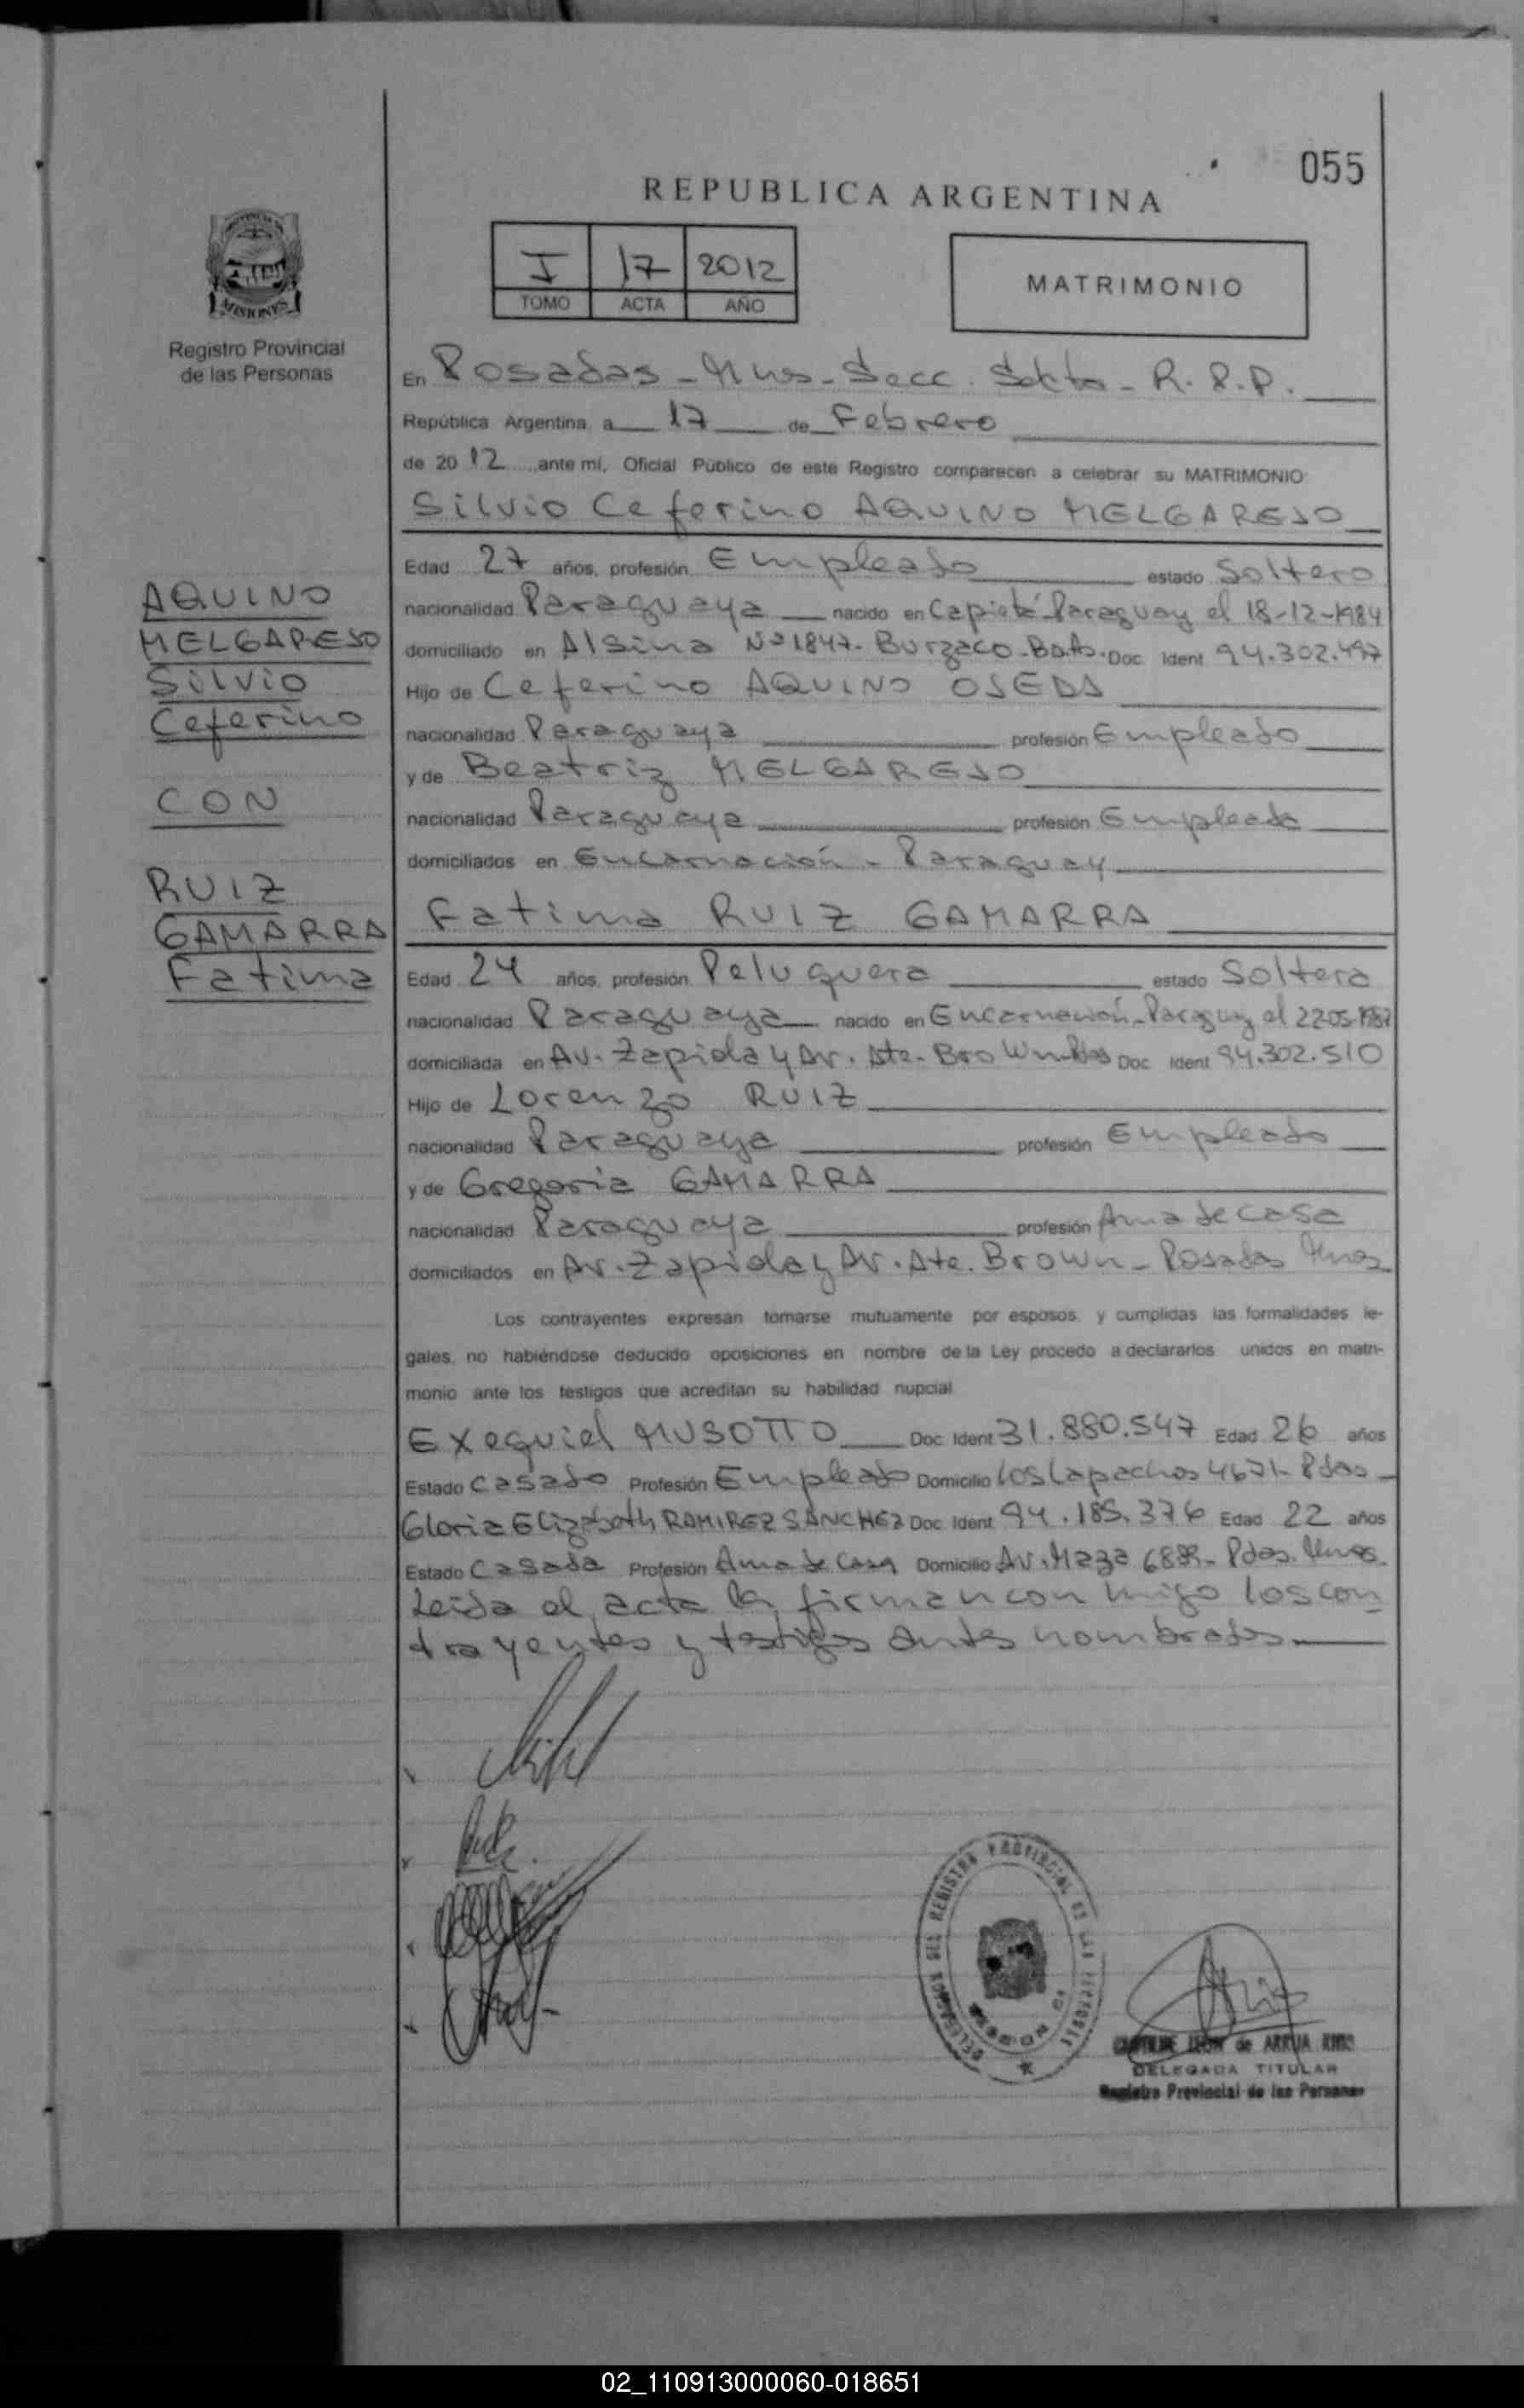 055
REPUBLICA ARGENTINA
I 17 2012
TOMO ACTA AÑO
MATRIMONIO
MISIONES
Registro Provincial
de las Personas
En Posadas - Mnes - Secc. Sexta - R.P.P.
República Argentina, a 17 de Febrero
de 2012 ante mí, Oficial Público de este Registro comparecen a celebrar su MATRIMONIO:
Silvio Ceferino AQUINO MELGAREJO
Edad 27 años, profesión Empleado estado Soltero
nacionalidad Paraguaya nacido en Capiatá-Paraguay el 18-12-1984
domiciliado en Alsina Nº 1847- Burzaco-Bs.As. Doc Ident 94.302.497
Hijo de Ceferino AQUINO OJEDA
nacionalidad Paraguaya profesión Empleado
y de Beatriz MELGAREJO
nacionalidad Paraguaya profesión Empleada
domiciliados en Encarnación - Paraguay
AQUINO
MELGAREJO
Silvio
Ceferino
CON
RUIZ
GAMARRA
Fatima
Fatima RUIZ GAMARRA
Edad 24 años, profesión Peluquera estado Soltera
nacionalidad Paraguaya nacido en Encarnación-Paraguay el 22-05-1987
domiciliada en Av. Zapiola y Av. Ate. Brown-Pdas Doc Ident 94.302.510
Hijo de Lorenzo RUIZ
nacionalidad Paraguaya profesión Empleado
y de Gregoria GAMARRA
nacionalidad Paraguaya profesión Ama de casa
domiciliados en Av. Zapiola y Av. Ate. Brown - Posadas Mnes
Los contrayentes expresan tomarse mutuamente por esposos, y cumplidas las formalidades le-
gales, no habiéndose deducido oposiciones en nombre de la Ley procedo a declararlos unidos en matri-
monio ante los testigos que acreditan su habilidad nupcial
Exequiel MUSOTTO Doc Ident 31.880.547 Edad 26 años
Estado Casado Profesión Empleado Domicilio Los Lapachos 4671- Pdas -
Gloria Elizabeth RAMIREZ SANCHEZ Doc. Ident 94.185.376 Edad 22 años
Estado Casada Profesión Ama de Casa Domicilio Av. Maza - Pdas. Mnes.
Leida el acta la firman con migo los con
trayentes y testigos antes nombrados.
DELEGACION DEL REGISTRO PROVINCIAL DE LAS PERSONAS
MISIONES
de ARRUA
DELEGADA TITULAR
Registro Provincial de las Personas
02_110913000060-018651